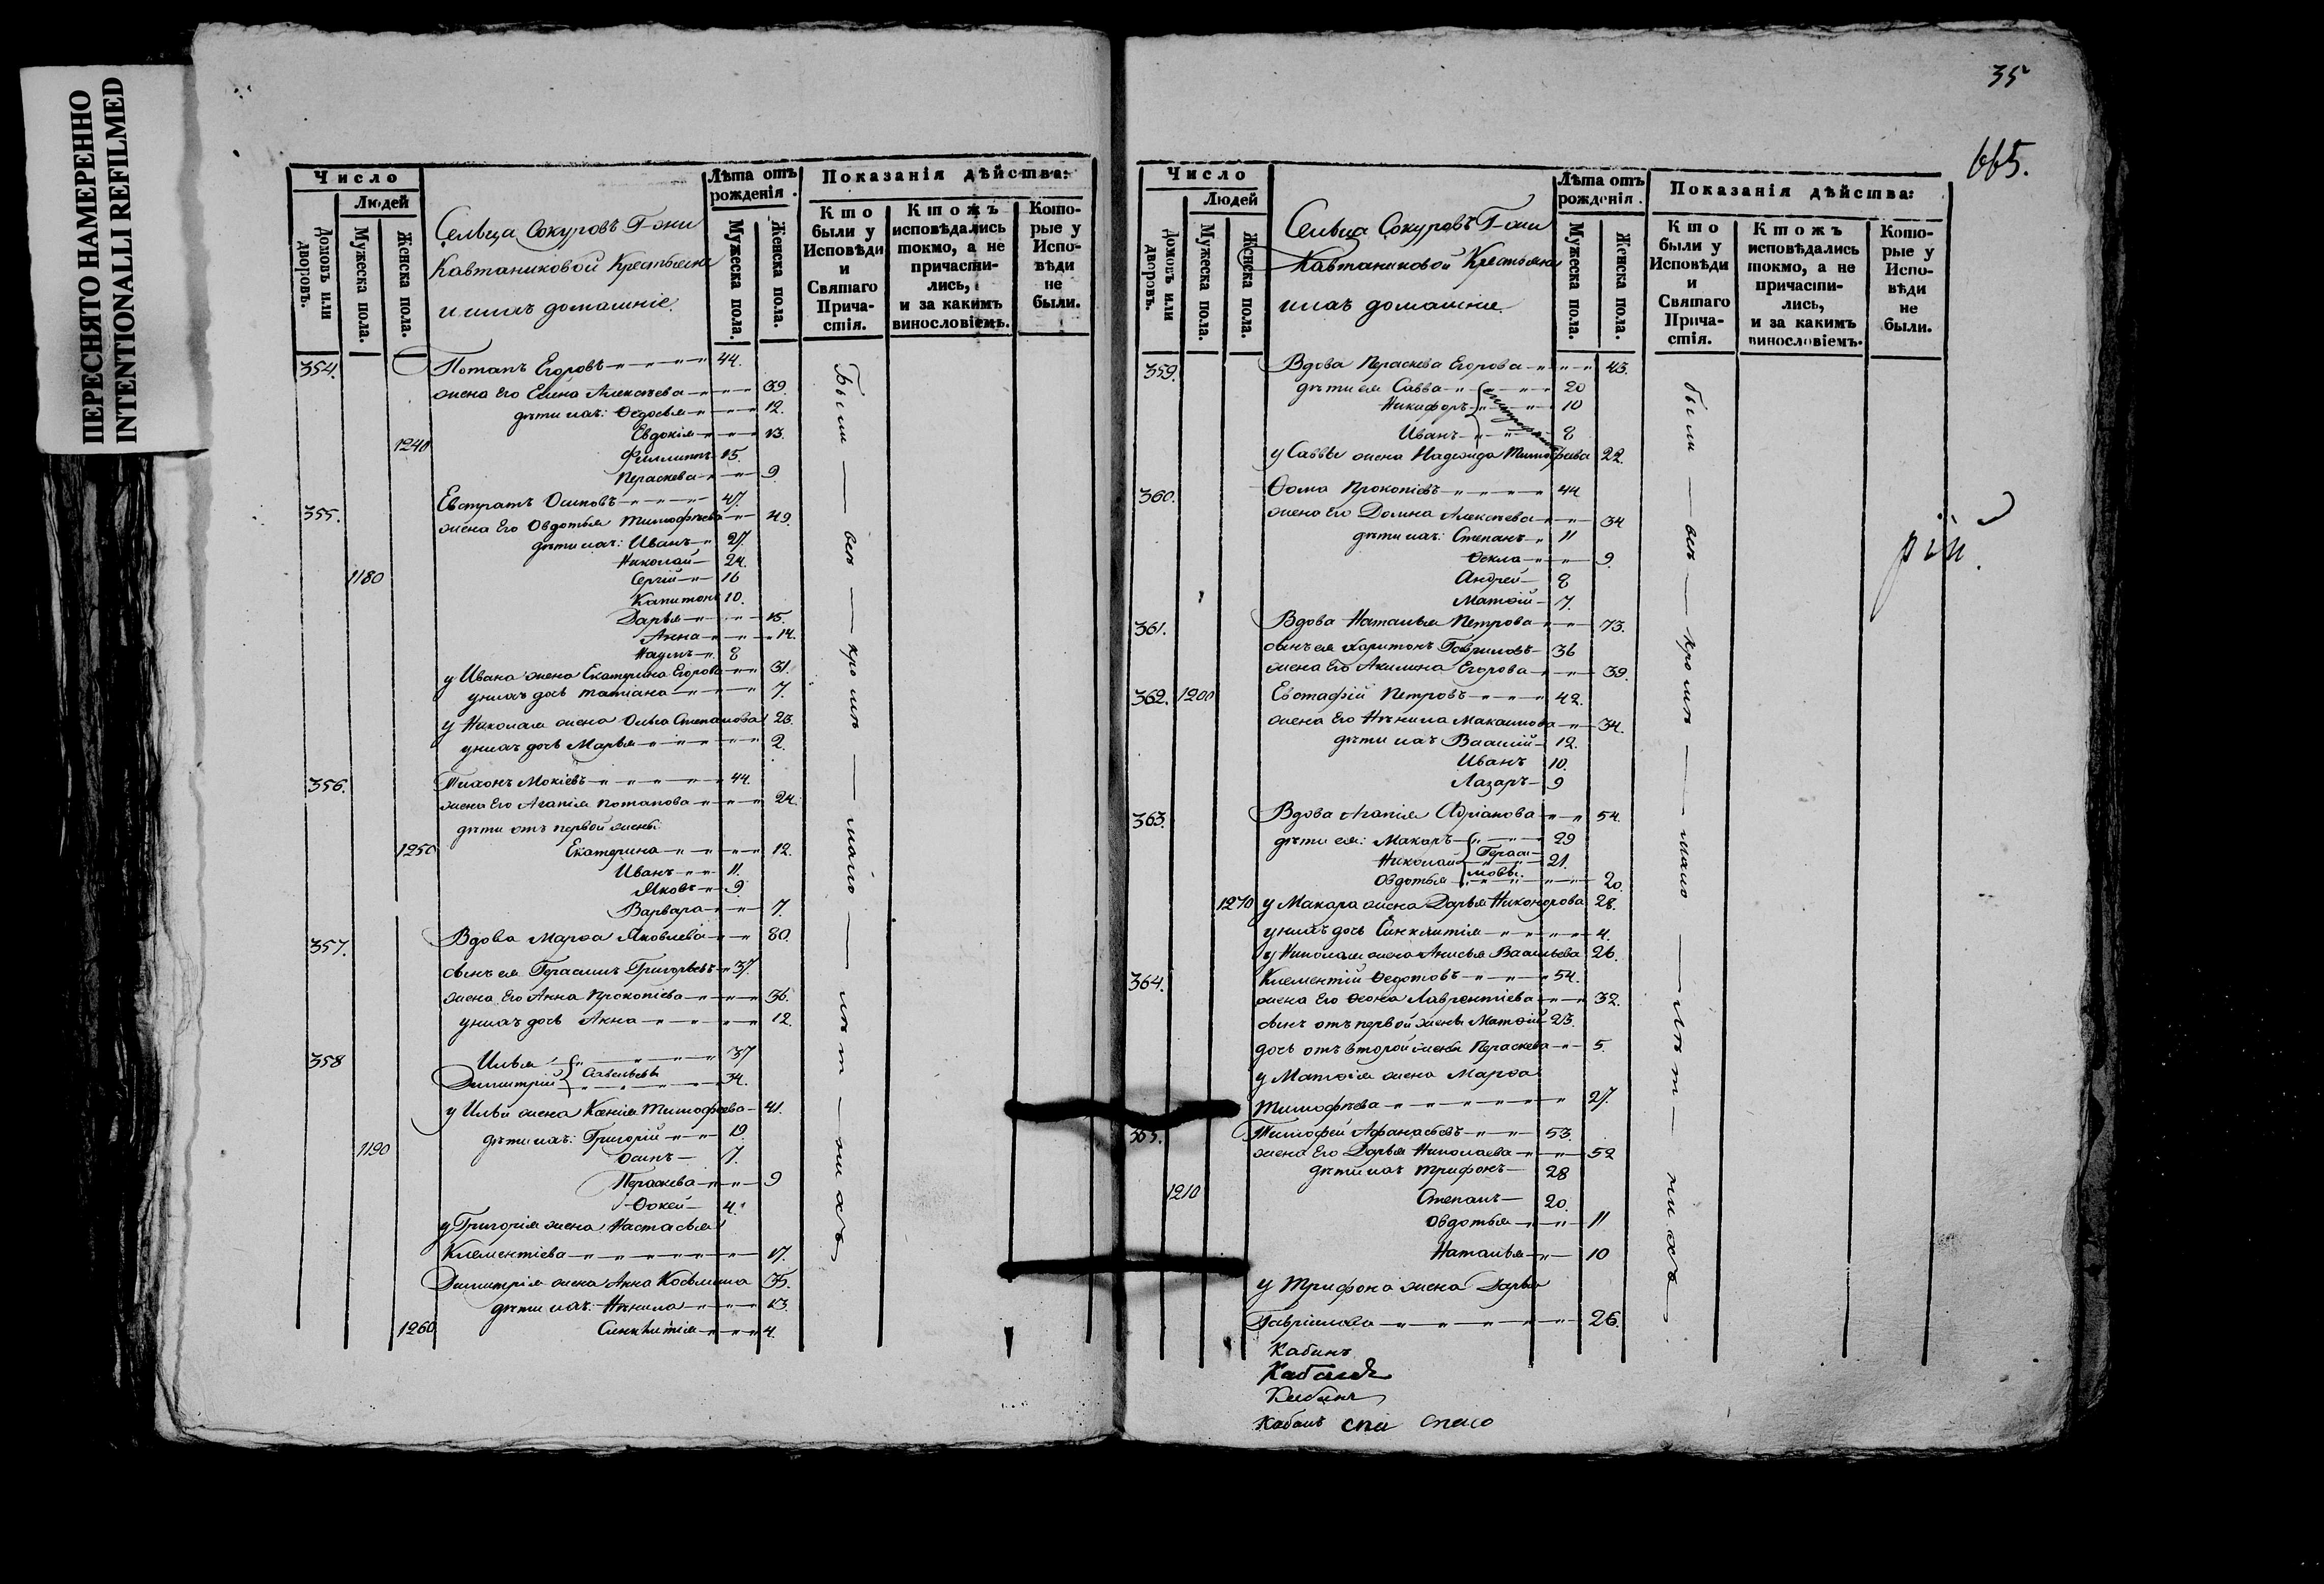 ПЕРЕСНЯТО НАМЕРЕННО
INTENTIONALLI REFILMED
Число
Людей
Домовъ или дворовъ.
Мужеска пола.
Женска пола.
Сельца Сокуровъ Г-жи
Кавтаниковой Крестьяне
и ихъ домашніе.
Лѣта отъ рожденія.
Мужеска пола.
Женска пола.
Показанія дѣйства:
Кто были у Исповѣди и Святаго Причастія.
Ктожъ исповѣдались токмо, а не причастились, и за какимъ винословіемъ.
Которые у Исповѣди не были.
354. Потапъ Егоровъ 44.
жена его Елена Алексѣева 39.
дѣти ихъ: Ѳедосья 12.
1240 Евдокія 13.
Филиппъ 15.
Пераскева 9
355. Евстратъ Осиповъ 47.
жена его Овдотья Тимофѣева 49.
дѣти ихъ: Иванъ 27.
Николай 24.
1180 Сергій 16
Капитонъ 10.
Дарья 15.
Анна 14.
Наумъ 8
у Ивана жена Екатерина Егорова 31.
у нихъ дочь Татіана 7.
у Николая жена Ольга Степанова 23.
у нихъ дочь Марья 2.
356. Тихонъ Мокіевъ 44.
жена его Агапія Потапова 24.
дѣти отъ первой жены
1250 Екатерина 12.
Иванъ 11.
Яковъ 9
Варвара 7.
357. Вдова Марѳа Яковлева 80.
сынъ ея Герасимъ Григорьевъ 37.
жена его Анна Прокопіева 36.
у нихъ дочь Анна 12.
358 Илья 37
Димитрій Савельевы 34.
у Ильи жена Ксенія Тимофѣева 41.
дѣти ихъ: Григорій 19.
1190 Осипъ 7.
Пераскева 9
Ѳокей 4.
у Григорія жена Настасья
Клементіева 17.
Димитрія жена Анна Косьмина 35.
дѣти ихъ: Нѣнила 13.
1260 Синклитія 4.
Были — всѣ — кромѣ — малолѣтнихъ
35
665.
Число
Людей
Домовъ или дворовъ.
Мужеска пола.
Женска пола.
Сельца Сокуровъ Г-жи
Кавтаниковой Крестьяне
ихъ домашніе.
Лѣта отъ рожденія.
Мужеска пола.
Женска пола.
Показанія дѣйства:
Кто были у Исповѣди и Святаго Причастія.
Ктожъ исповѣдались токмо, а не причастились, и за какимъ винословіемъ.
Которые у Исповѣди не были.
359. Вдова Пераскева Егорова 43.
дѣти ея Савва 20
Никифоръ 10
Иванъ 8
у Саввы жена Надежда Тимофѣева 22.
360. Ѳома Прокопіевъ 44
жена его Домна Алексѣева 34
дѣти ихъ: Степанъ 11
Ѳекла 9.
Андрей 8
Матѳій 7.
361. Вдова Наталья Петрова 73.
сынъ ея Харитонъ Гавриловъ 36
жена его Акилина Егорова 39.
362. 1200 Евстафій Петровъ 42.
жена его Нѣнила Максимова 34.
дѣти ихъ Василій 12.
Иванъ 10.
Лазарь 9
363. Вдова Агапія Адріанова 54.
дѣти ея: Макаръ 29
Николай Герасимовы 21.
Овдотья 20.
1270 у Макара жена Дарья Никонорова 28.
у нихъ дочь Синклитія 4.
у Николая жена Анисья Васильева 26.
364. Клементій Ѳедотовъ 54.
жена его Ѳеона Лаврентіева 32.
сынъ отъ первой жены Матѳій 23.
дочь отъ второй жены Пераскева 5.
у Матѳія жена Марѳа
Тимофѣева 27.
365. Тимофей Афанасьевъ 53.
жена его Дарья Николаева 52
дѣти ихъ Трифонъ 28
1210 Степанъ 20.
Овдотья 11
Наталья 10
у Трифона жена Дарья
Гавріилова 26.
были — всѣ — кромѣ — малолѣтнихъ
рій
Кабинъ
Кабинъ
Кабанъ
спи спасо